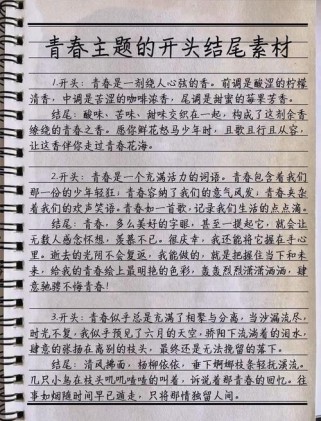 青春主题的开头结尾素材
1.开头：青春是一剂绕人心弦的香。前调是酸涩的柠檬
清香，中调是苦涩的咖啡浓香，尾调是甜蜜的莓果芳香。
结尾：酸味、苦味、甜味交织在一起，构成了这剂余香
缭绕的青春之香。愿你鲜花怒马少年时，且歌且行且从容，
让这香伴你走过青春花海。
2.开头：青春是一个充满活力的词语。青春包含着我们
那一份的少年轻狂；青春容纳了我们的意气风发；青春夹杂
着我们的欢声笑语。青春如一首歌，记录我们生活的点点滴。
结尾：青春，多么美好的字眼，甚至一提起它，就会让
无数人感念怀想，羡慕不已。很庆幸，我还能将它握在手心
里。逝去的光阴不会复返，我能做的，就是把握住当下和未
来，给我的青春绘上最明艳的色彩，轰轰烈烈潇潇洒洒，肆
意驰骋不悔青春！
3.开头：青春似乎总是充满了相聚与分离，当沙漏流尽，
时光不复，我似乎预见了六月的天空，骄阳下流淌着的泪水，
肆意的张扬在离别的枝头，最终还是无法挽留的落下。
结尾：清风拂面，杨柳依依，垂下婀娜枝条轻抚涟漪。
几只小鸟在枝头叽叽喳喳的叫着，诉说着那青春的回忆。往
事如烟随时间早已遁走，只将那情独留人间。